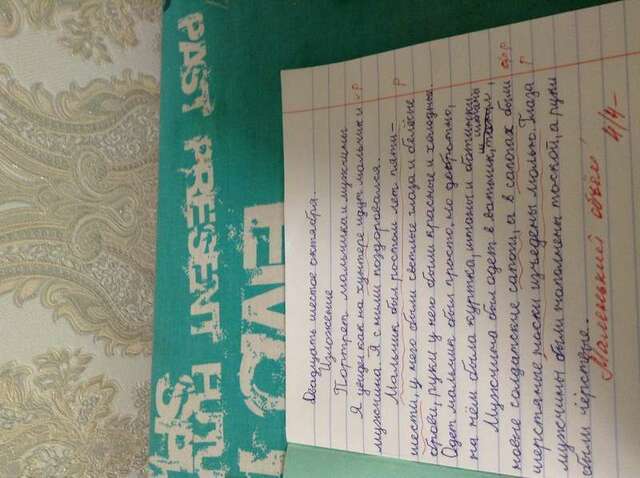 PAST PRESENT FUTU
SP
EVO
Двадцать шестое октября.
Изложение
Портрет мальчика и мужчины
Я увидел как на хуторе идут мальчик и
мужчина. Я с ними поздоровался.
Мальчик был ростом лет пяти-
шести, у него были светлые глаза и белёсые
брови, руки у него были красные и холодные.
Одет мальчик был просто, но добротно,
на нём была куртка, штаны и ботинки.
и штаны
Мужчина был одет в ватник,
новые солдатские сапоги, а в сапогах были
шерстяные носки изъедены молью. Глаза
мужчины были наполнены тоской, а руки
были чёрствые.
Маленький объём!
4/4-